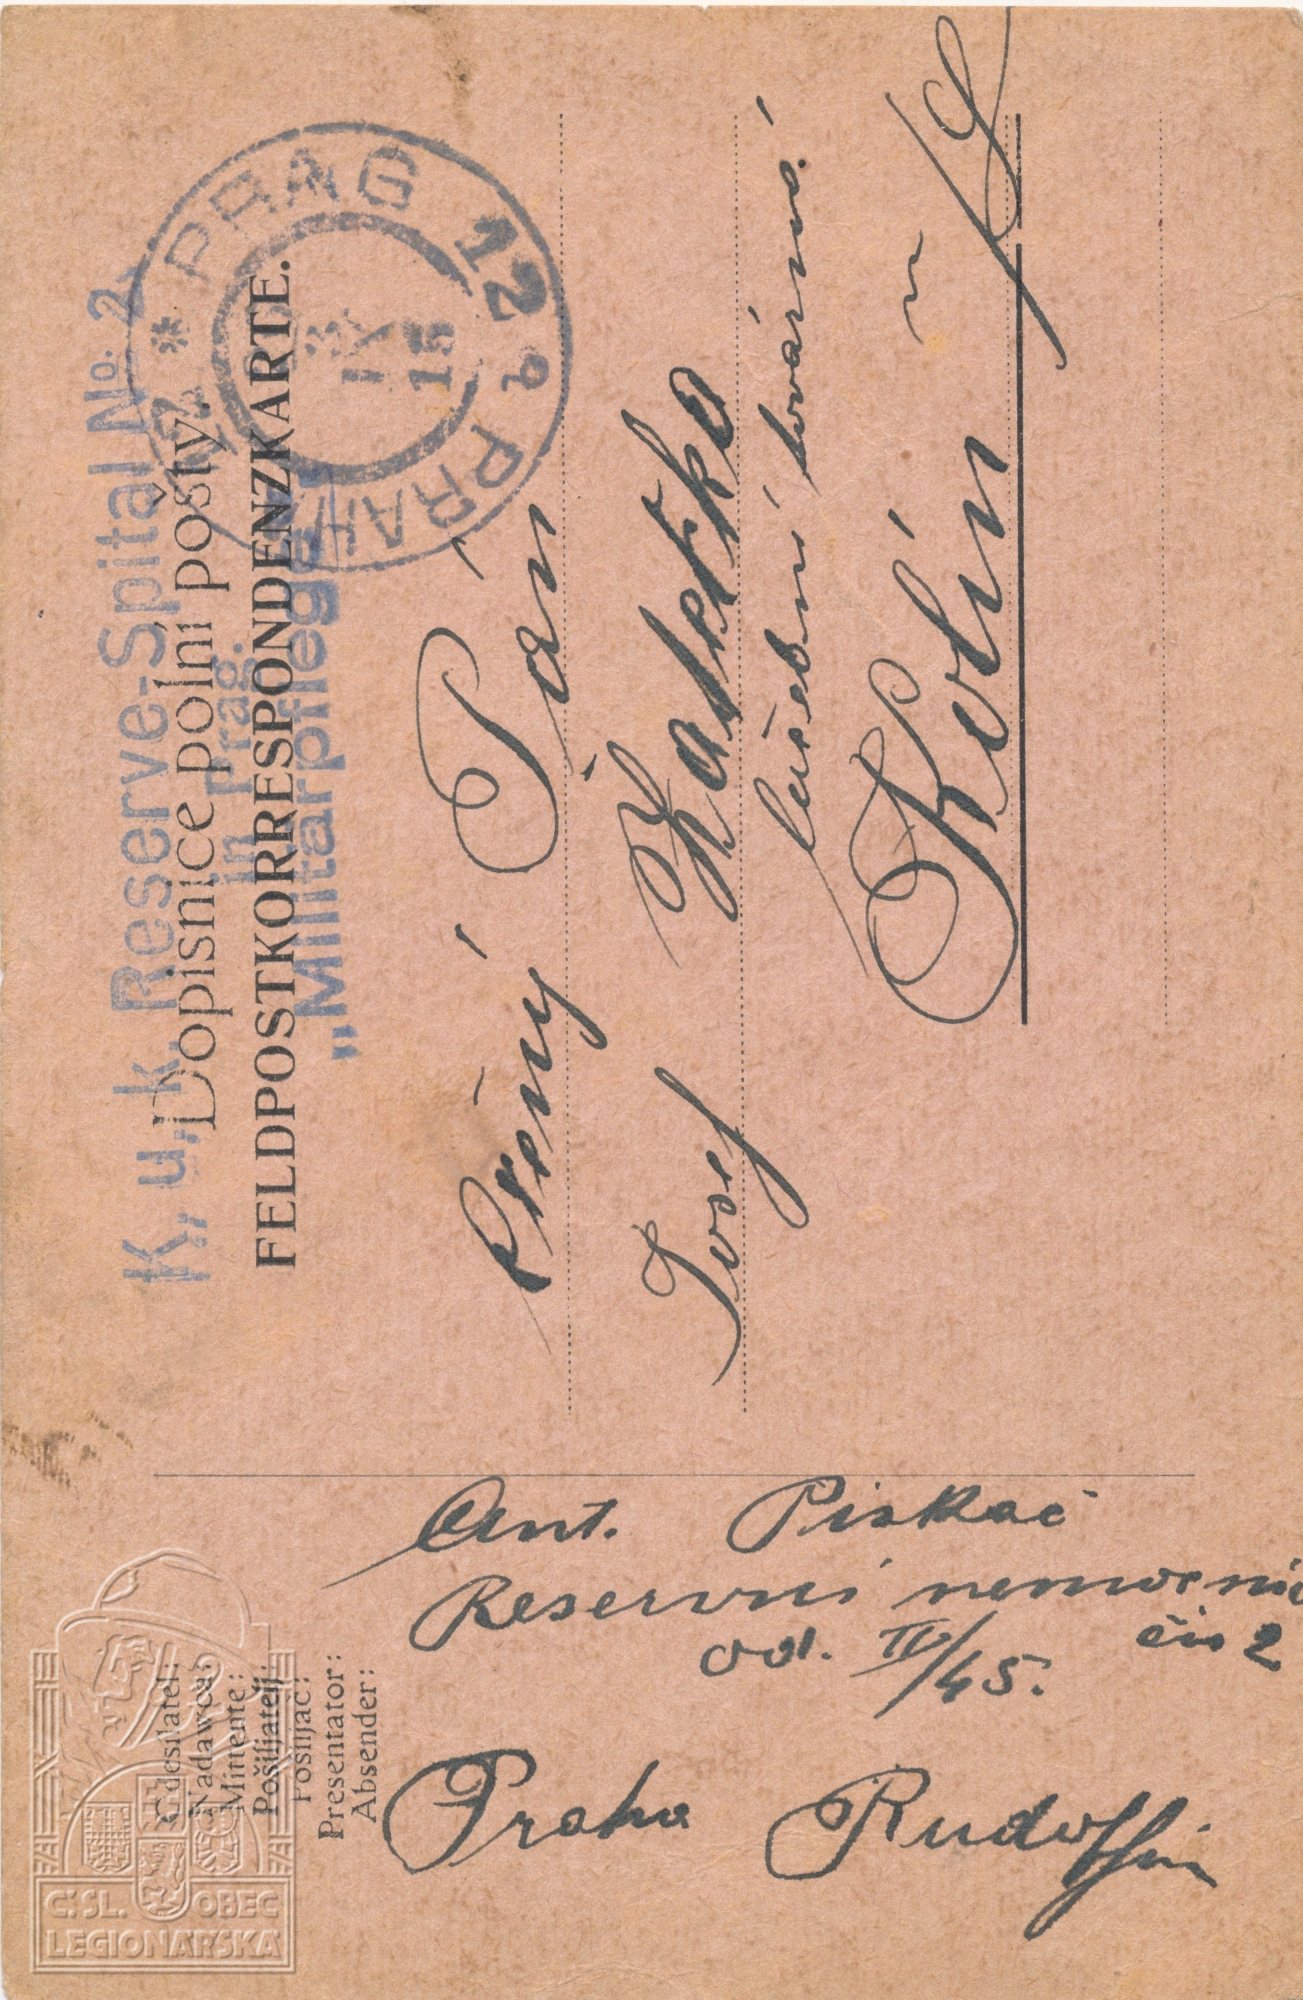 K. u. k. Reserve-Spital No. 2
Dopisnice polní pošty.
in Prag.
FELDPOSTKORRESPONDENZKARTE.
"Militärpflege"
PRAG 12
3
IX
15
b PRAHA 12
Pán
Josef
lučební továrna
Kolín n/L
Odesílatel:
Nadawca:
Mittente:
Pošiljatelj:
Pošiljač:
Presentator:
Absender:
Ant. Piskač
Reservní nemocnic
čis 2
odd. IV/45.
Praha Rudolfin
Č.SL. OBEC
LEGIONÁŘSKÁ